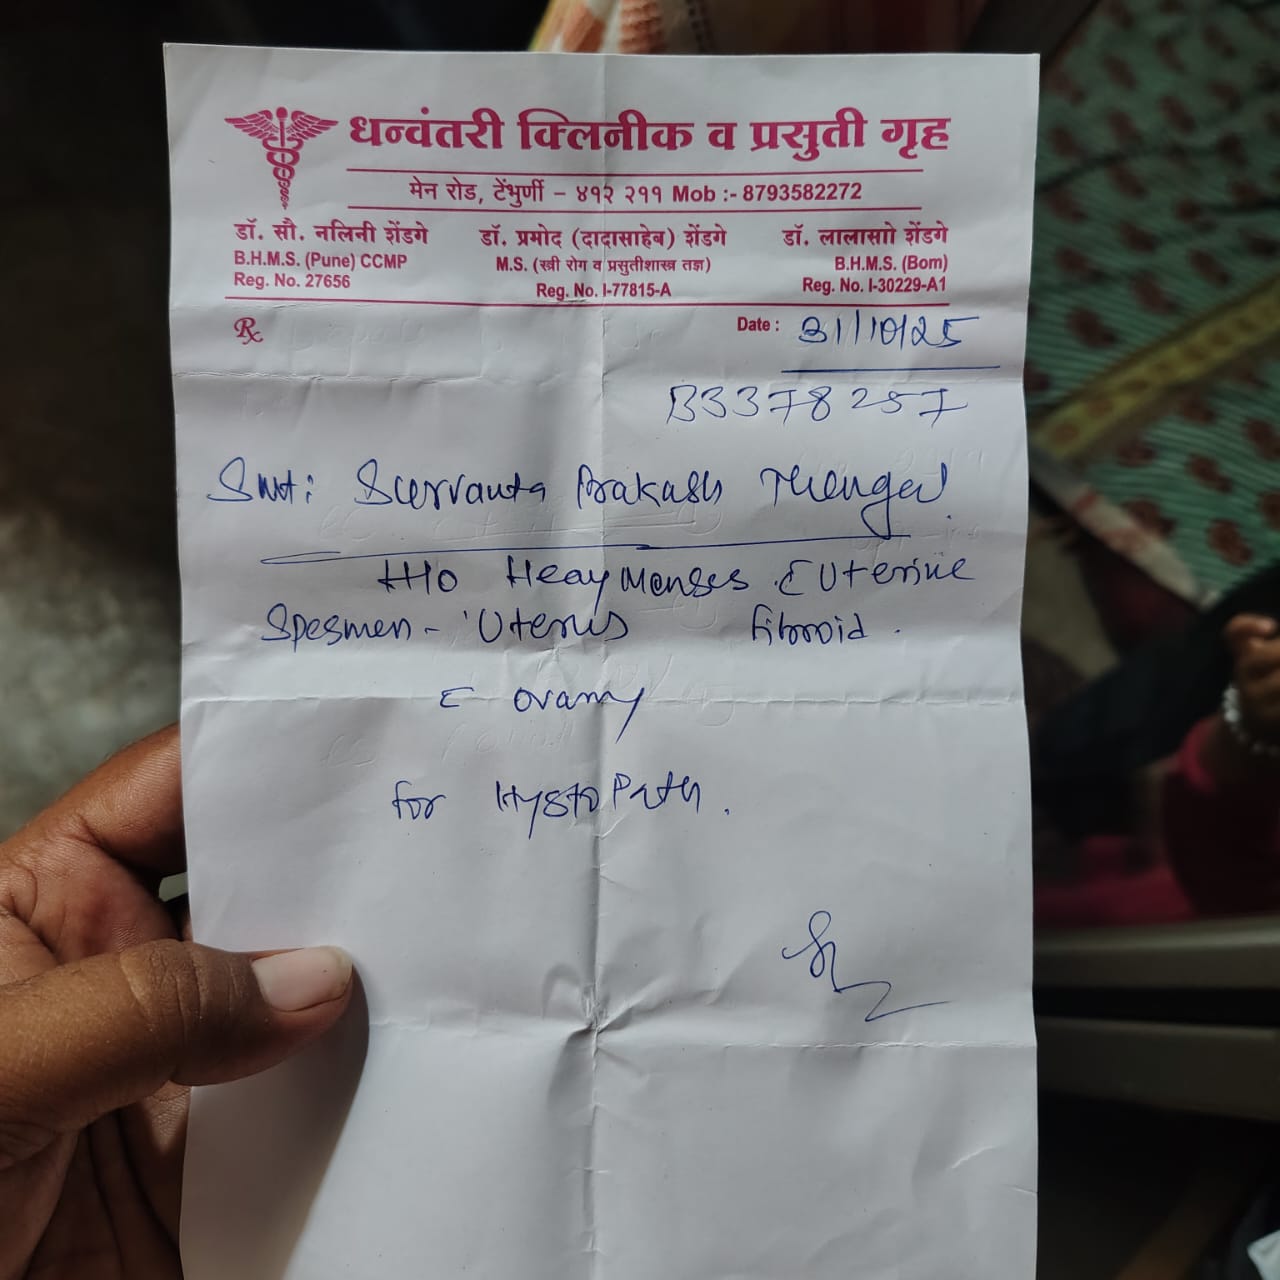 धन्वंतरी क्लिनीक व प्रसुती गृह
मेन रोड, टेंभुर्णी – ४१२ २११ Mob :- 8793582272
डॉ. सौ. नलिनी शेंडगे
B.H.M.S. (Pune) CCMP
Reg. No. 27656
डॉ. प्रमोद (दादासाहेब) शेंडगे
M.S. (स्त्री रोग व प्रसुतीशास्त्र तज्ञ)
Reg. No. I-77815-A
डॉ. लालासाो शेंडगे
B.H.M.S. (Bom)
Reg. No. I-30229-A1
Rx
Date : 31/10/25
B3378257
Smt: Prakash
H/O Heay Menses c Uterine
fibroid.
Spesmen - Uterus
c ovary
for HystoPath.